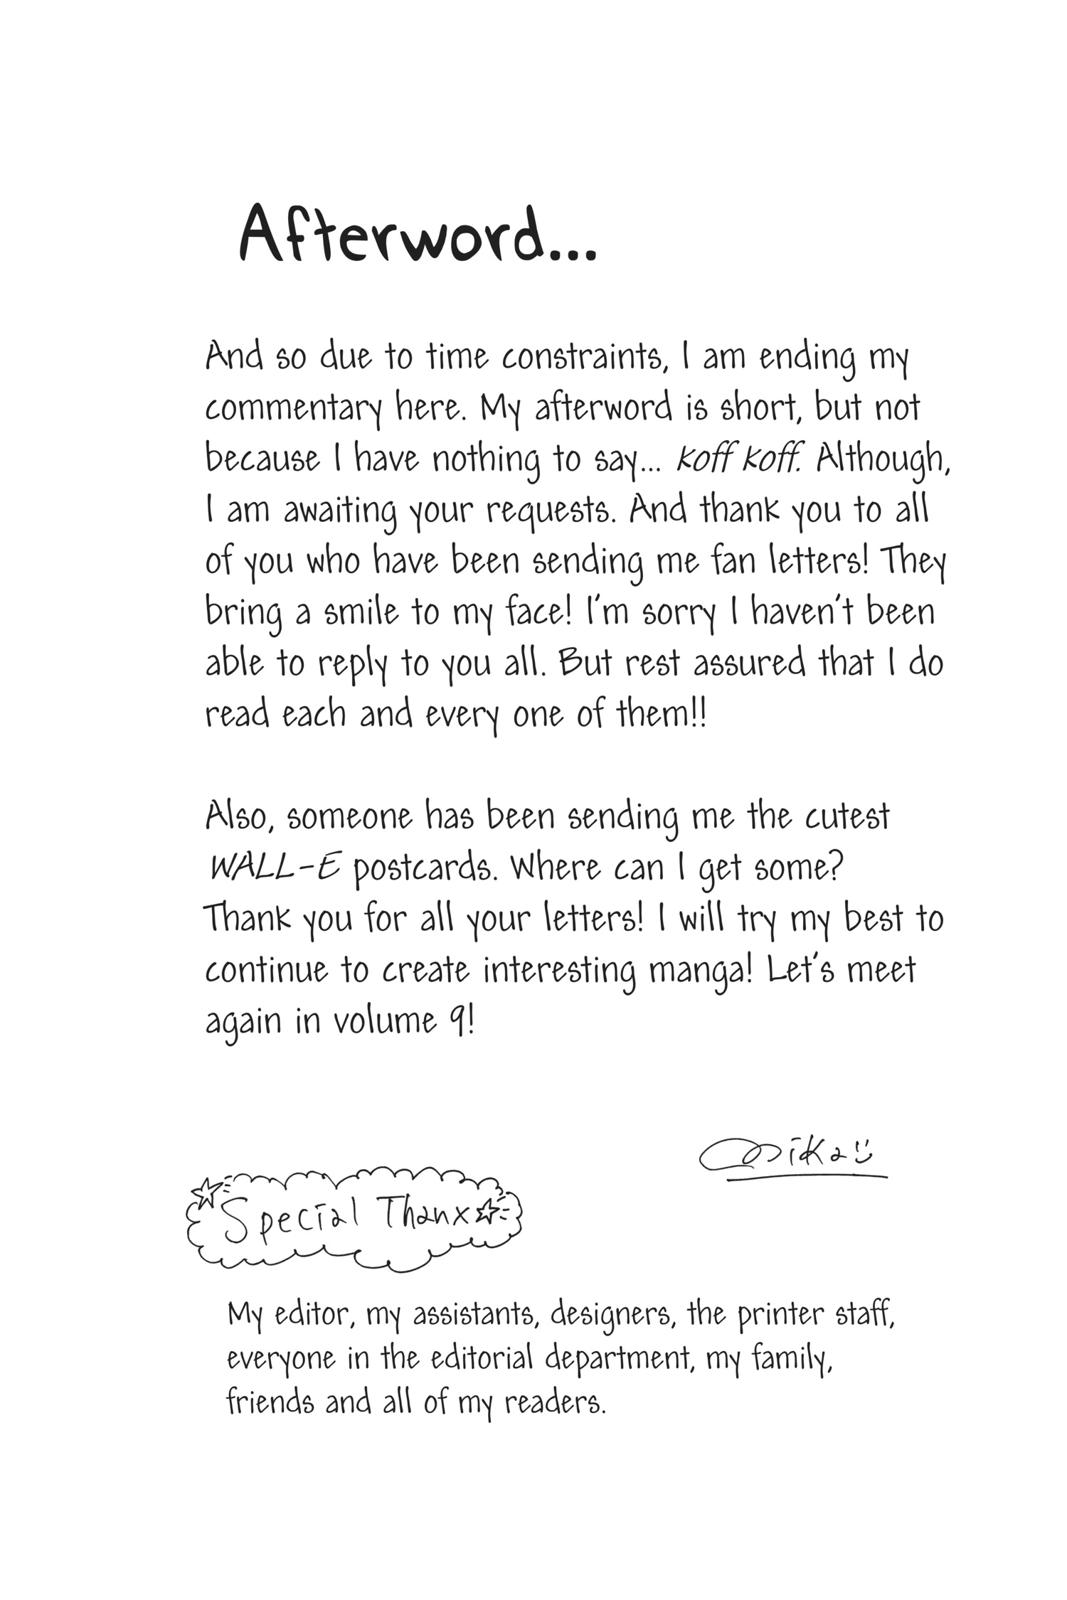 Afterword...
And so due to time constraints, I am ending my
commentary here. My afterword is short, but not
because I have nothing to say... koff koff. Although,
I am awaiting your requests. And thank you to all
of you who have been sending me fan letters! They
bring a smile to my face! I'm sorry I haven't been
able to reply to you all. But rest assured that I do
read each and every one of them!!
Also, someone has been sending me the cutest
WALL-E postcards. Where can I get some?
Thank you for all your letters! I will try my best to
continue to create interesting manga! Let's meet
again in volume 9!
Mika
Special Thanx
My editor, my assistants, designers, the printer staff,
everyone in the editorial department, my family,
friends and all of my readers.